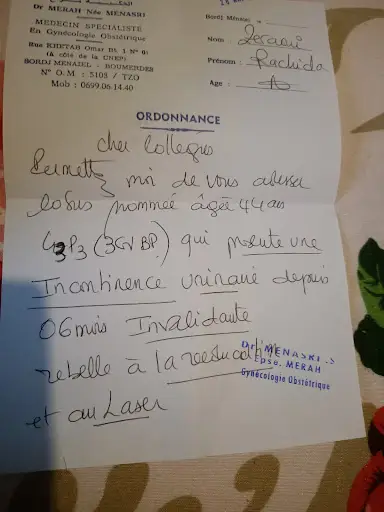 Dr MERAH Née MENASRI
MEDECIN SPECIALISTE
En Gynécologie Obstétrique
Rue KHETAB Omar Bt 1 N° 9
(A côté de la CNEP)
BORDJ MENAIEL - BOUMERDES
N° O.M : 5105 / TZO
Mob : 0699.06.14.40
Bordj Ménaiel, le
Nom
Prénom : Rachida
Age :
ORDONNANCE
cher Collegues
Permettez moi de vous adresser
la sus nommée âgée 44 ans
G3P3 (3GVBP) qui présente une
Incontinence urinaire depuis
06 mois Invalidante
rebelle à la
et au Laser
Dr. MENASRI -S
Epse. MERAH
Gynécologie Obstétrique